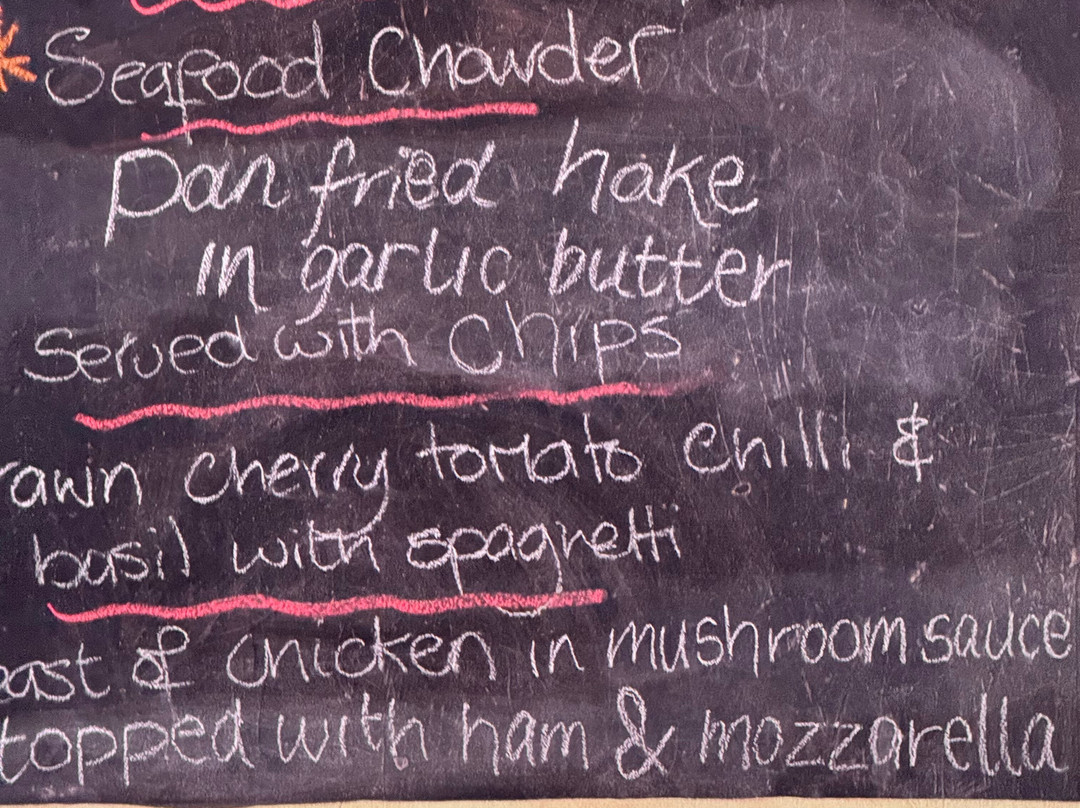 * Seafood Chowder
Pan fried hake
in garlic butter
Served with Chips
rawn cherry tomato chilli &
basil with spaghetti
east of chicken in mushroom sauce
topped with ham & mozzarella